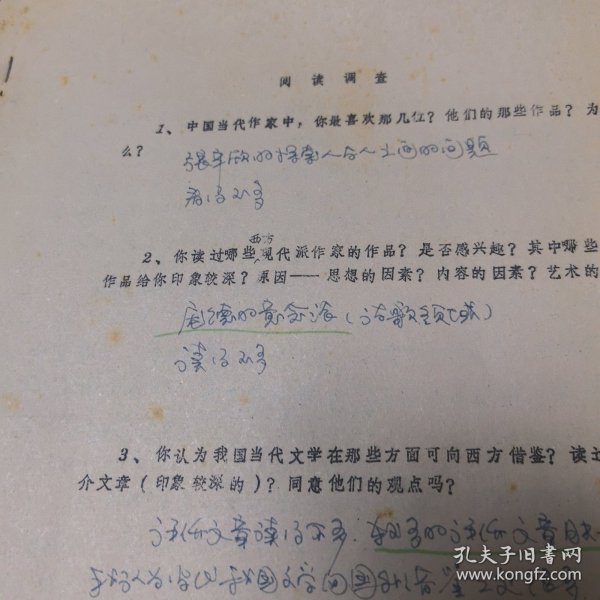 阅读调查
1、中国当代作家中，你最喜欢那几位？他们的那些作品？为
么？
张辛欣的探索人与人之间的问题
看得不多
西方
2、你读过哪些现代派作家的作品？是否感兴趣？其中哪些
作品给你印象较深？原因——思想的因素？内容的因素？艺术的
庞德的意象派（诗歌领域）
读得不多
3、你认为我国当代文学在那些方面可向西方借鉴？读过
介文章（印象较深的）？同意他们的观点吗？
评价文章读得不多.
孔夫子旧书网
www.kongfz.com